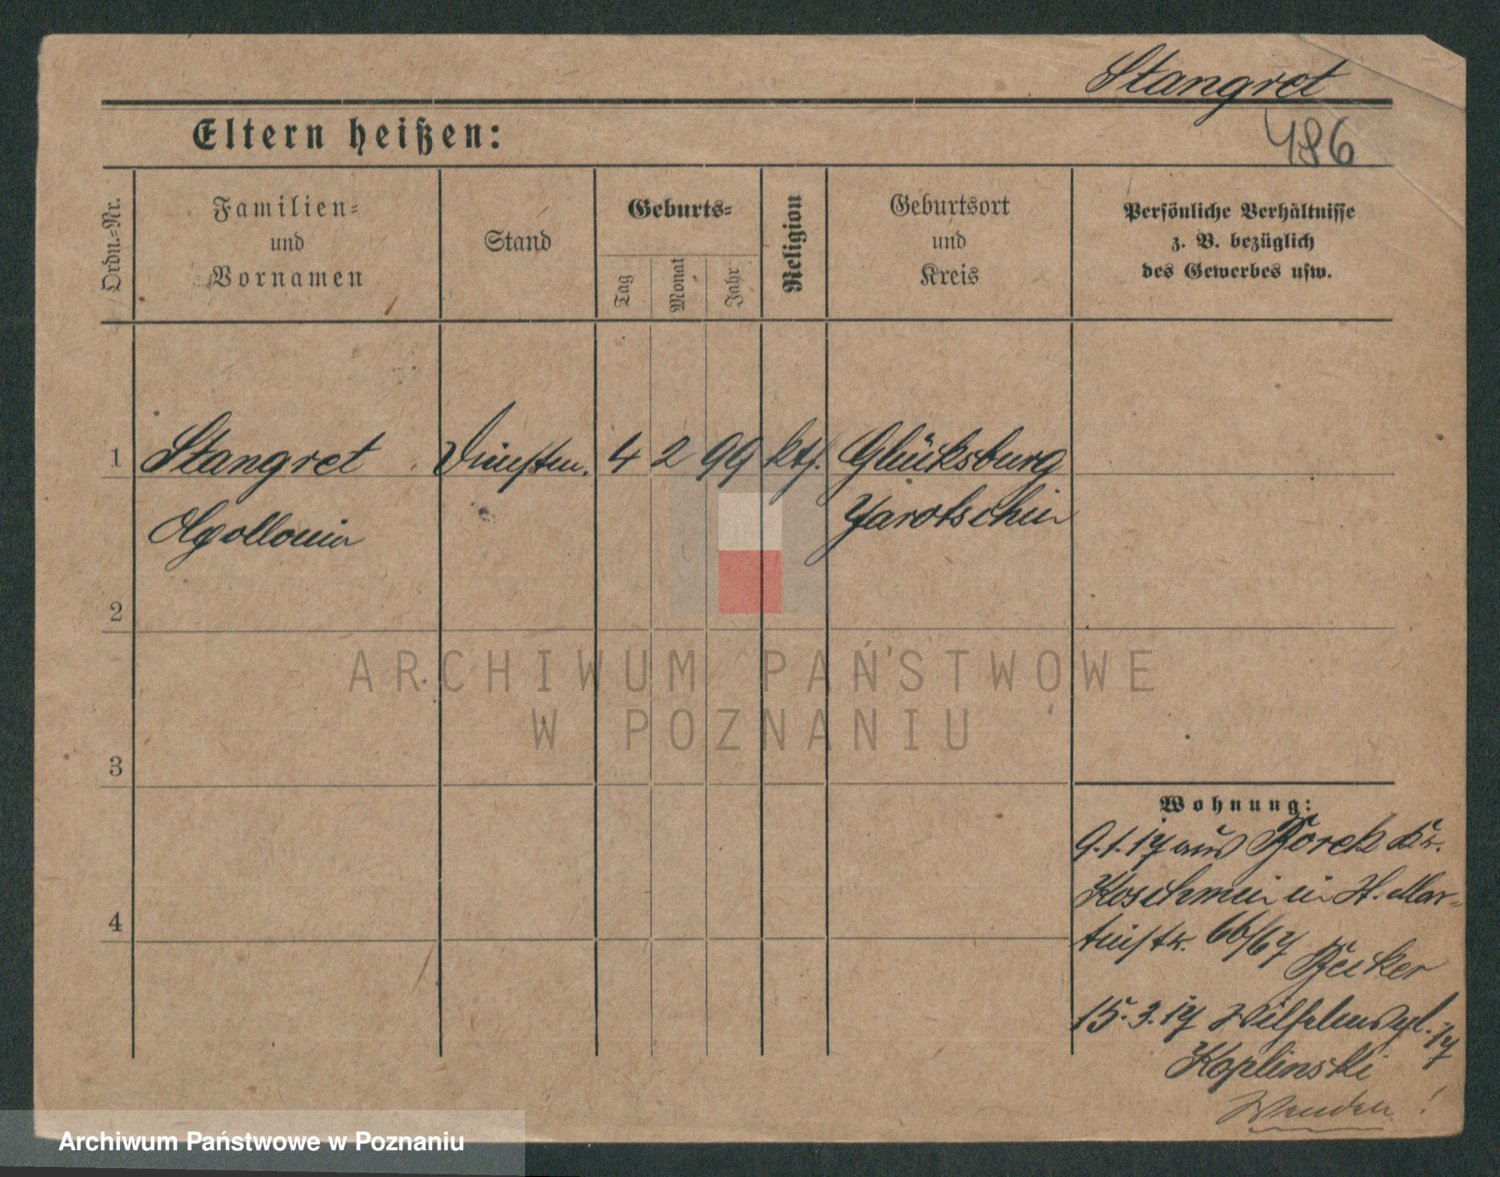 Stangret
486
Eltern heißen:
Ordn.-Nr.
Familien-
und
Vornamen
Stand
Geburts-
Tag
Monat
Jahr
Religion
Geburtsort
und
Kreis
Persönliche Verhältnisse
z. B. bezüglich
des Gewerbes usw.
1 Stangret 4 2 99 kth. Glücksburg
Apollonia Jarotschin
2
3
4
Wohnung:
9.1.17 aus Borek Kr.
Koschmin in St. Mar-
tinstr. 66/67
Becker
15.3.17 Wilhelmspl. 17
Koplinski
Wenden!
ARCHIWUM PAŃSTWOWE
W POZNANIU
Archiwum Państwowe w Poznaniu